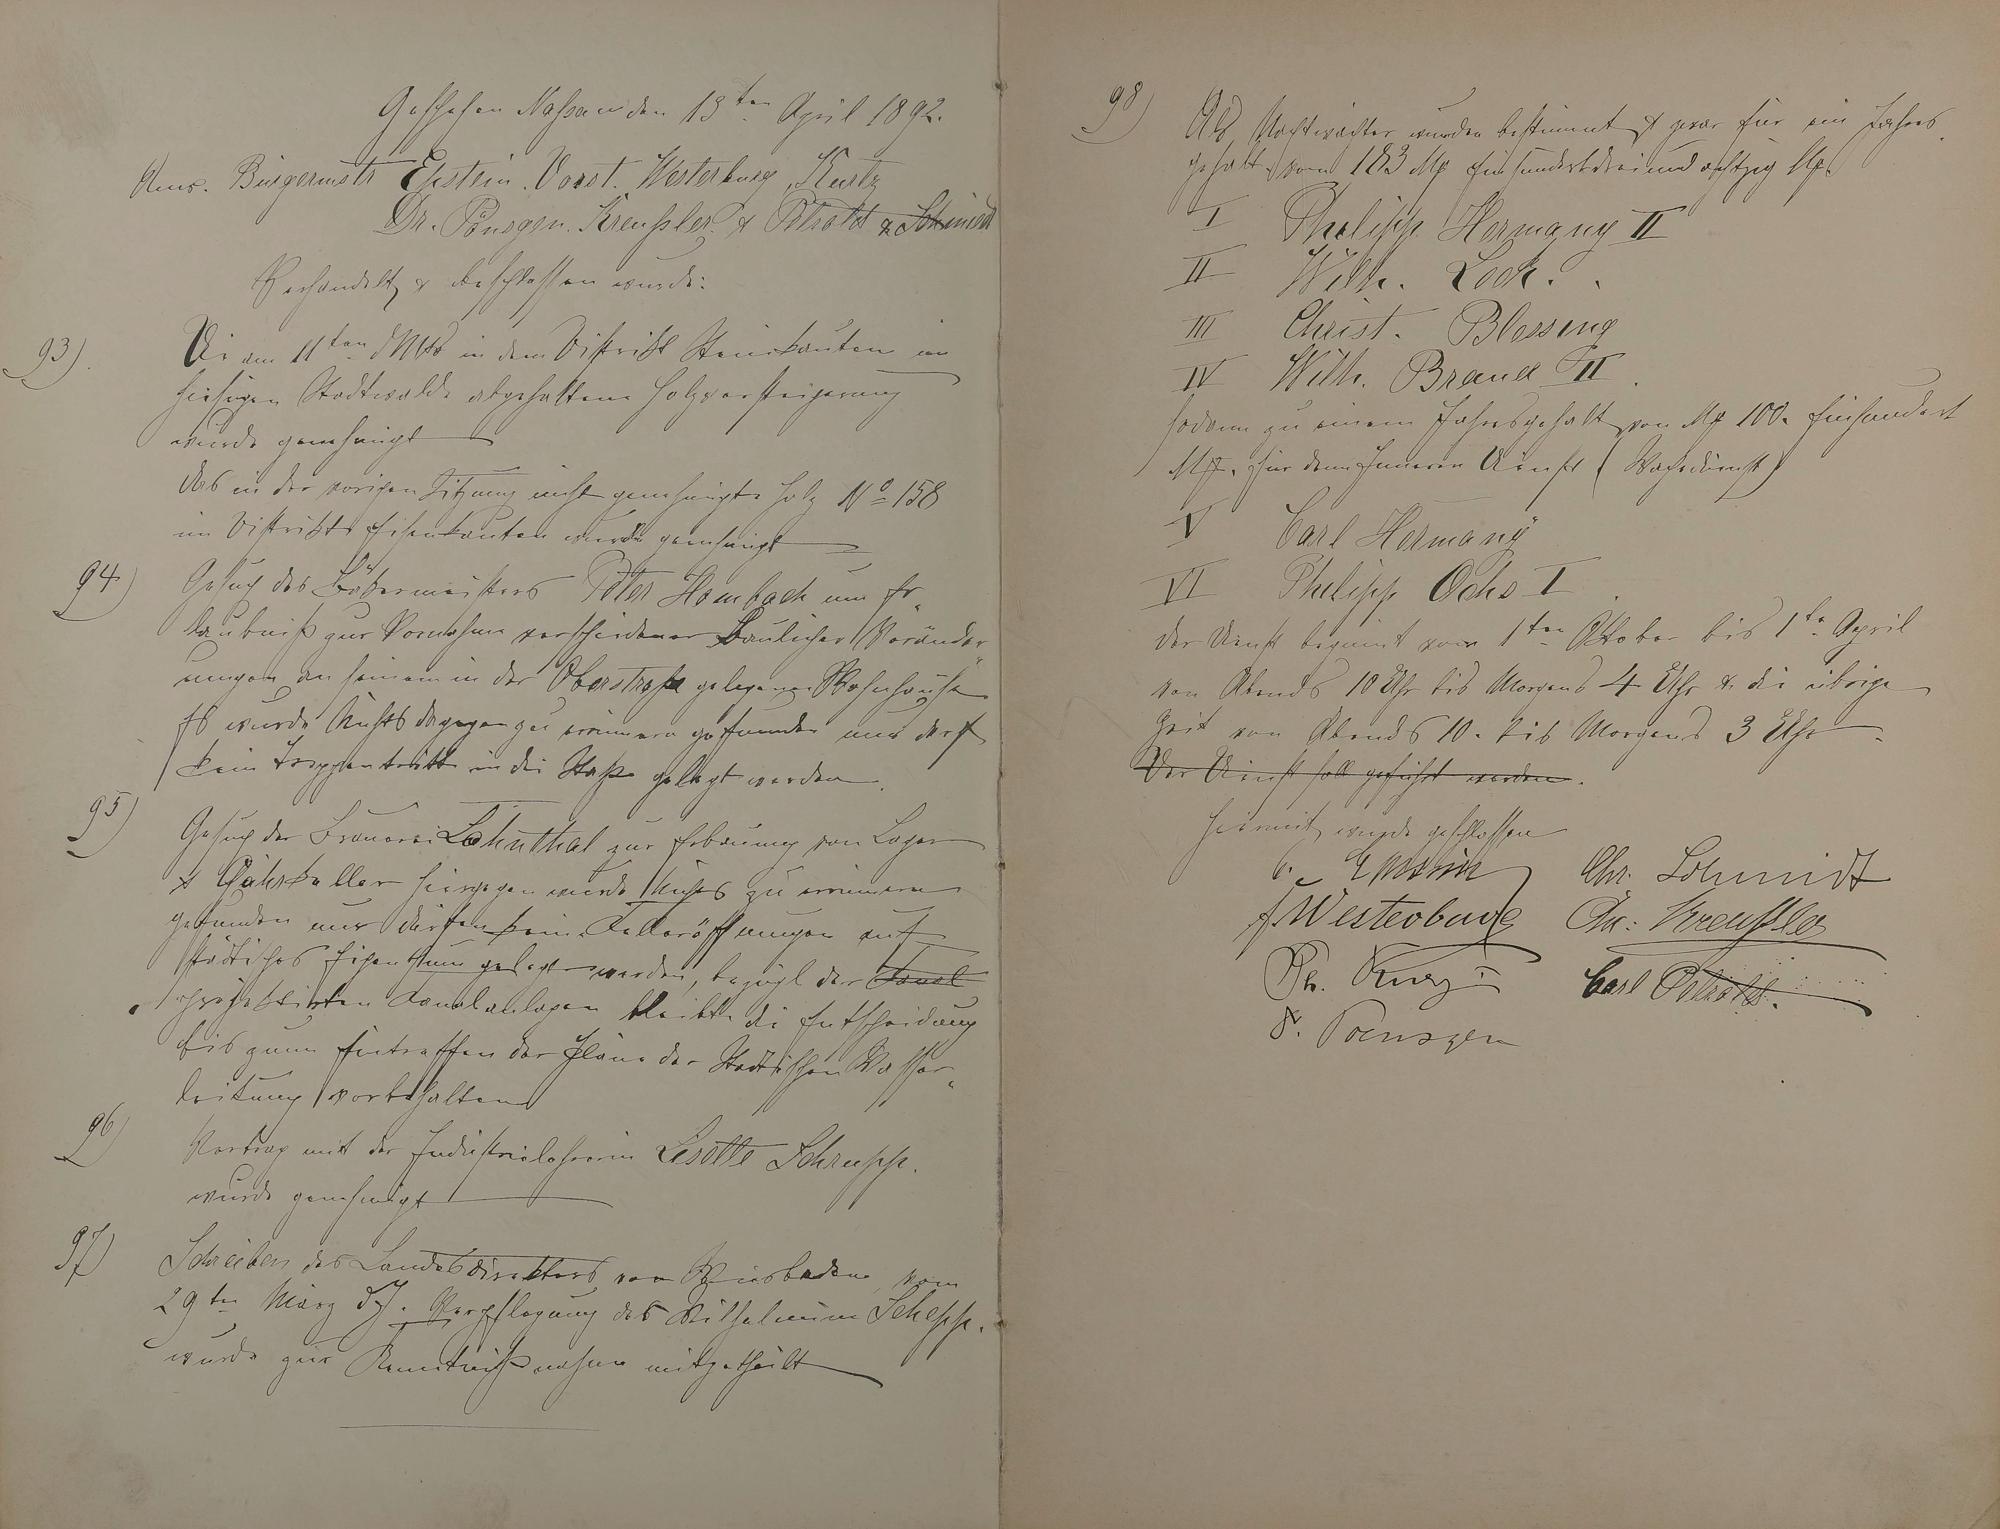 Geschehen Nassau den 13ten April 1892.
Anw. Bürgermstr Epstein. Vorst. Westerburg, Kurtz
Dr. Pönsgen. Kreußler & Petrold & Schmidt
Verhandelt & beschlossen wurde:
93) Die am 11ten d Mts in dem Distrikt Steinkauten im
hiesigen Stadtwalde abgehaltene Holzversteigerung
wurde genehmigt
Das in der vorigen Sitzung nicht genehmigte Holz No 158
im Distrikte Eisenkauten wurde genehmigt
94) Gesuch des Bäkermeisters Peter Hombach um Er„
laubniß zur Vornahme verschiedener Baulicher Veränder„
ungen an seinem in der Oberstraße gelegenen Wohnhause
Es wurde Nichts dagegen zu erinnern gefunden nur darf
kein Treppentritt in die Staße gelegt werden.
95) Gesuch der Brauerei Löhnthal zur Erbauung von Lager
& Gährkeller hiergegen wurde Nichts zu erinnern
gefunden nur dürfen keine Kelleröffnungen auf
städtisches Eigenthum gelegt werden, bezügl der Canal
projektirten Canalanlagen bleibt die Entscheidung
bis zum Eintreffen der Pläne der Städtischen Wasser„
leitung vorbehalten
96) Vertrag mit der Industrielehrerin Lisette Schrupp.
wurde genehmigt
97) Schreiben des Landesdirektors von Wiesbaden vom
29ten März dJ. Verpflegung des Wilhelmine Schepp.
wurde zur Kenntnißnahme mitgetheilt
98) Als Nachtwächter wurden bestimmt & zwar für ein Jahres
gehalt von 183 Mk Einhundertdreiundachtzig Mk
I Philipp Hermany II
II Wilh. Loch.
III Christ. Blessing
IV Wilh. Brand II
sodann zu einem Jahresgehalt von Mk 100. Einhundert
Mk. für den Inneren Dienst (Wachedienst)
V Carl Hermany
VI Philipp Ochs I
Der Dienst beginnt vom 1ten Oktober bis 1te April
von Abends 10 Uhr bis Morgens 4 Uhr & die übrige
Zeit von Abends 10. bis Morgens 3 Uhr
Der Dienst soll geführt werden.
Hiermit wurde geschlossen
Epstein Chr. Schmidt
Westerburg Chr: Kreußler
Ph. Kurz Carl Petrold.
Poensgen